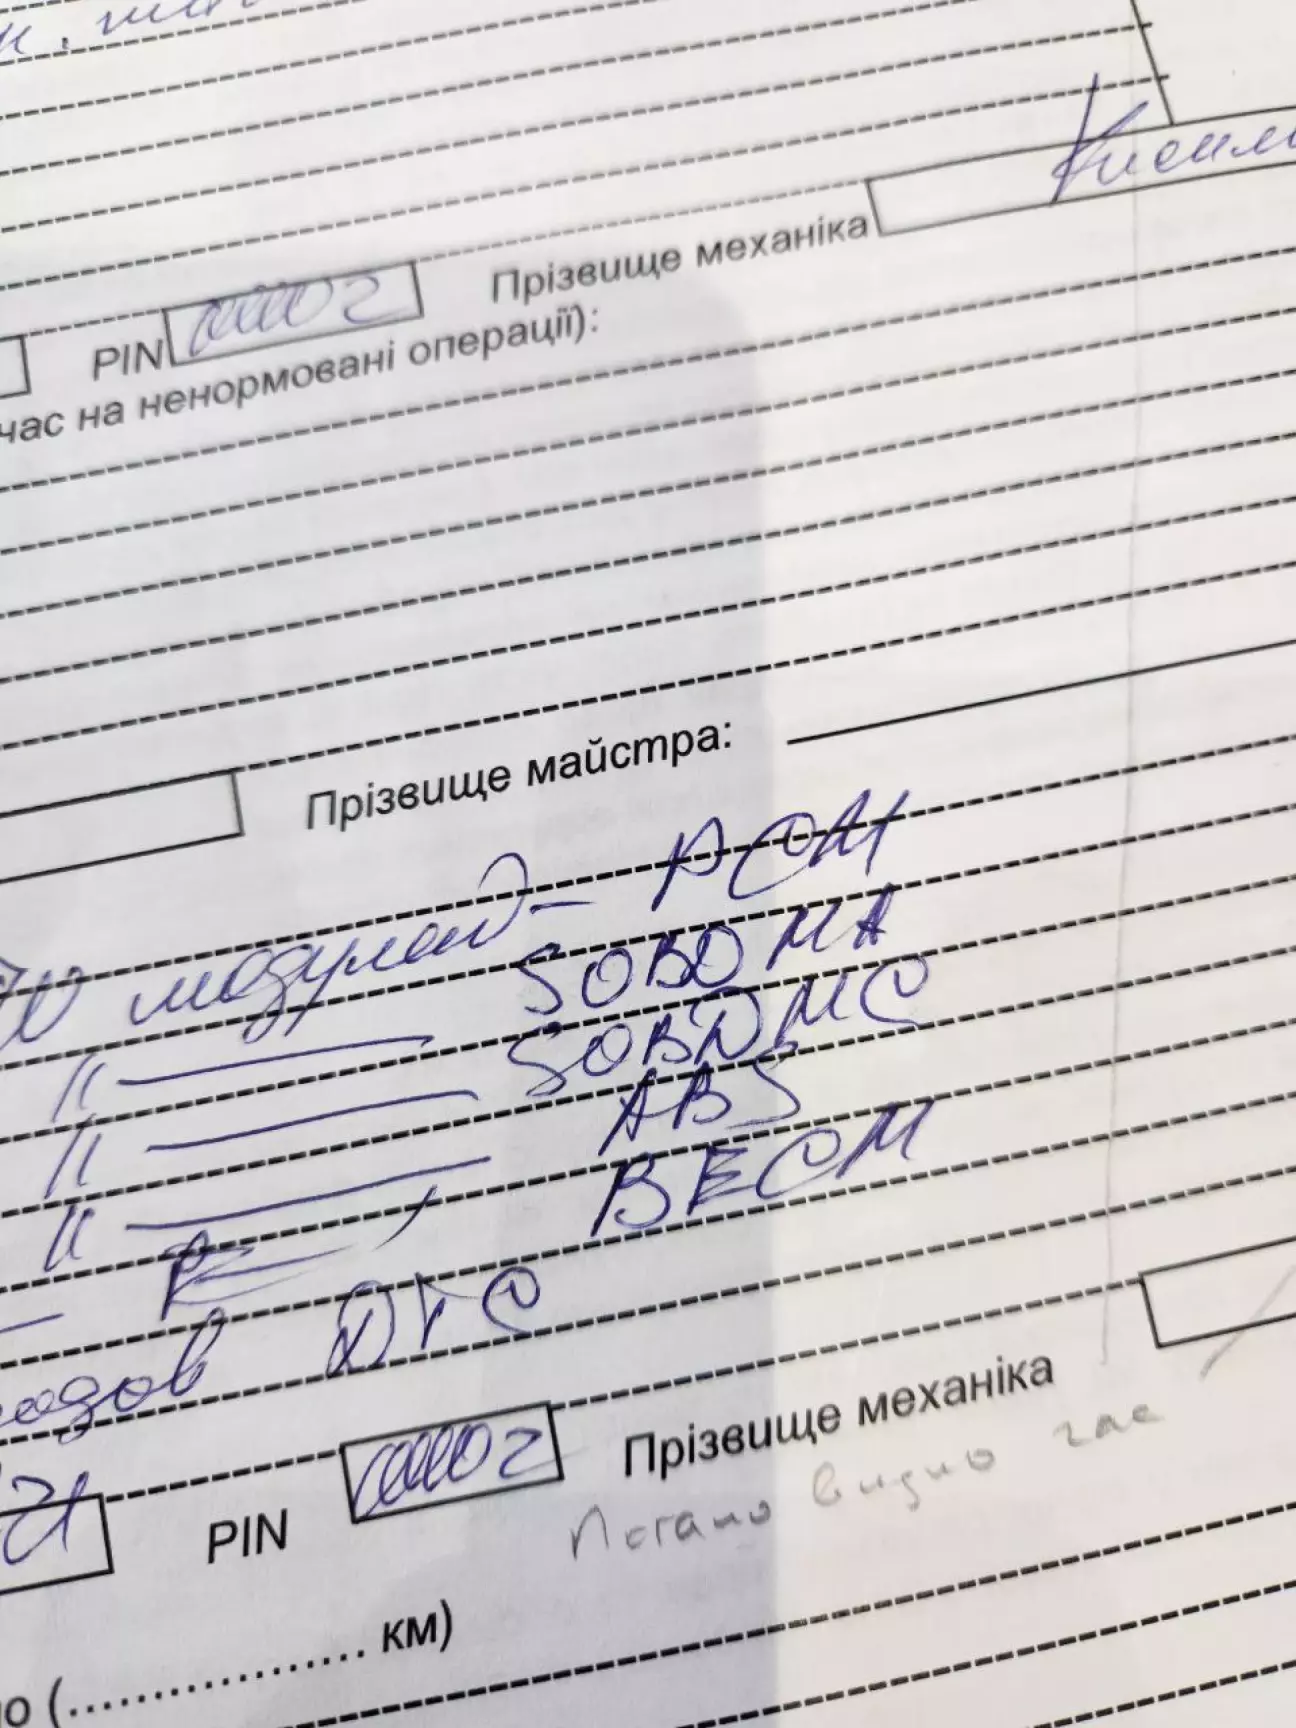 PIN Прізвище механіка
час на ненормовані операції):
Прізвище майстра:
модулей - PCM
〃 SOBDMA
〃 SOBDMC
〃 ABS
BECM
DTC
PIN Прізвище механіка
Погано видно час
км)